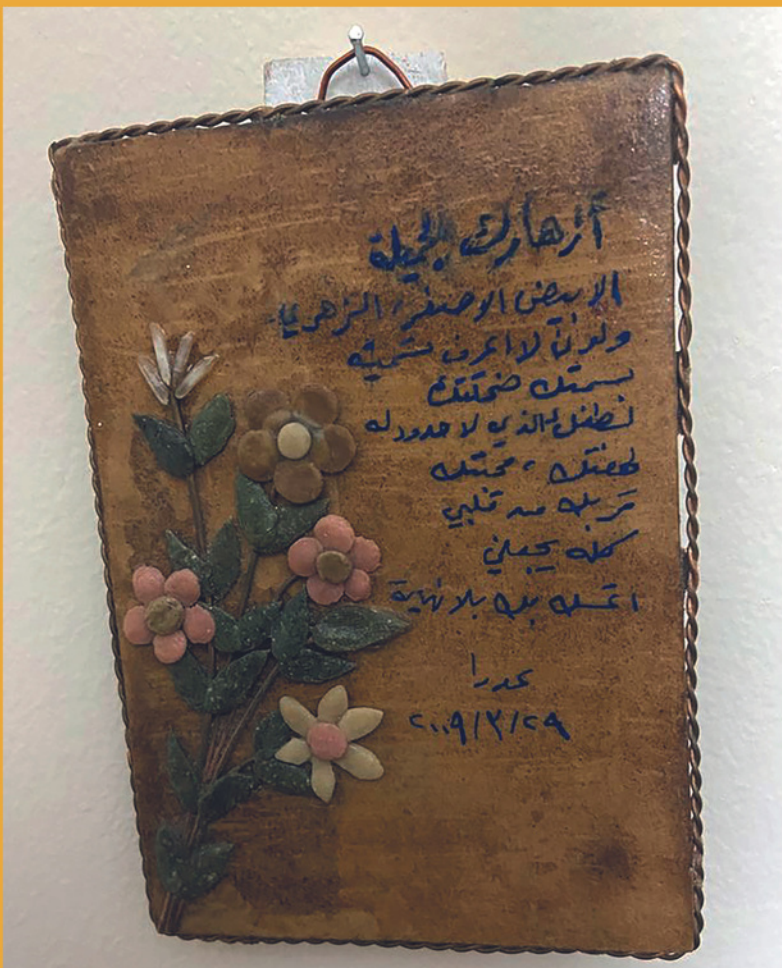 أزهارك الجميلة
الابيض الاصفر، الزهري
ولون لا اعرف تسميته
بسمتك ضحكتك
لطفك الذي لا حدود له
لهفتك، محبتك
قربك من قلبي
كله يجعلني
اتمسك بك بلا نهاية
عدرا
٢٠٠٩/٣/٢٩